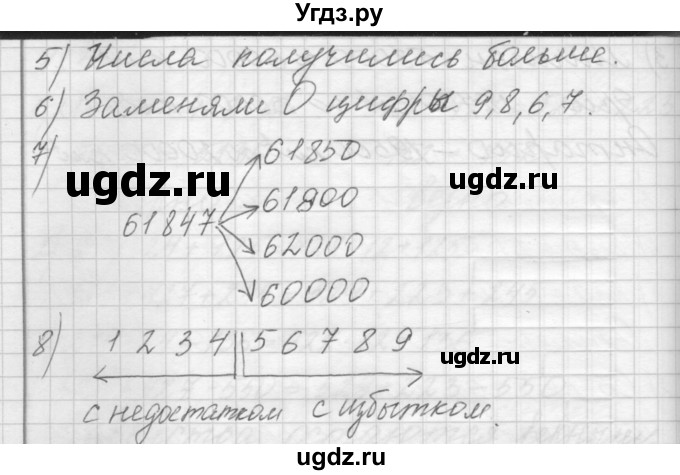 Угдз.ру
5) Числа получились больше.
6) Заменяли 0 цифры 9, 8, 6, 7.
7)
61850
ugdz.ru
61900
ugdz.ru
61847
62000
60000
8) 1 2 3 4 5 6 7 8 9
ugdz.ru
с недостатком с избытком.
ugdz.ru